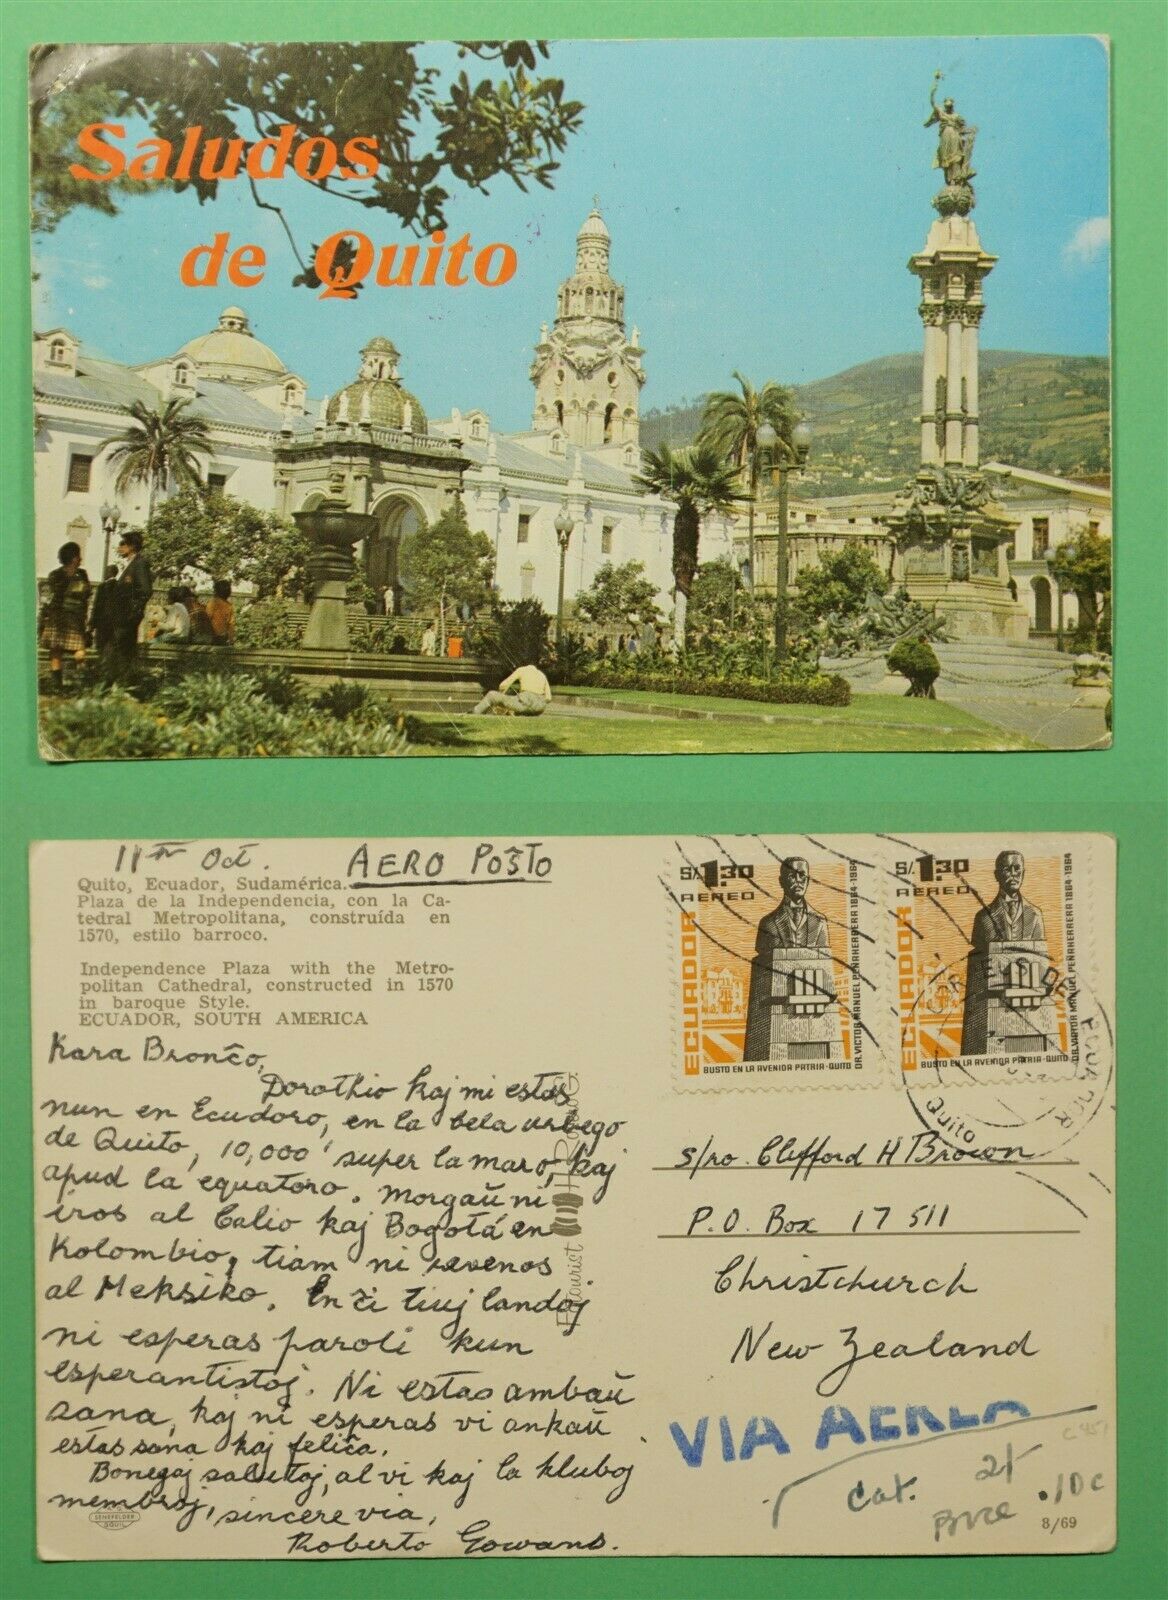 Saludos
de Quito
11th Oct. AERO POŜTO
Quito, Ecuador, Sudamérica.
Plaza de la Independencia, con la Ca-
tedral Metropolitana, construída en
1570, estilo barroco.
Independence Plaza with the Metro-
politan Cathedral, constructed in 1570
in baroque Style.
ECUADOR, SOUTH AMERICA
Kara Bronĉo,
Dorothio kaj mi estas
nun en Ecudoro, en la bela urbego
de Quito, 10,000' super la maro, kaj
apud la equatoro. Morgaŭ ni
iros al Calio kaj Bogotá en
Kolombio, tiam ni revenos
al Meksiko. En ĉi tiuj landoj
ni esperas paroli kun
esperantistoj. Ni estas ambaŭ
sana, kaj ni esperas vi ankaŭ
estas sana kaj feliĉa.
Bonegaj salutoj, al vi kaj la kluboj
membroj, sincere via,
Roberto Gowans.
SENEFELDER
GQUIL
S/. 1.30
AEREO
ECUADOR
BUSTO EN LA AVENIDA PATRIA-QUITO
DR. VICTOR MANUEL PEÑAHERRERA 1864-1964
S/. 1.30
AEREO
ECUADOR
BUSTO EN LA AVENIDA PATRIA-QUITO
DR. VICTOR MANUEL PEÑAHERRERA 1864-1964
CORREOS DEL ECUADOR
Quito
s/ro. Clifford H Brown
P.O. Box 17511
Christchurch
New Zealand
VIA AEREA
Cat. 2/-
.10c
8/69